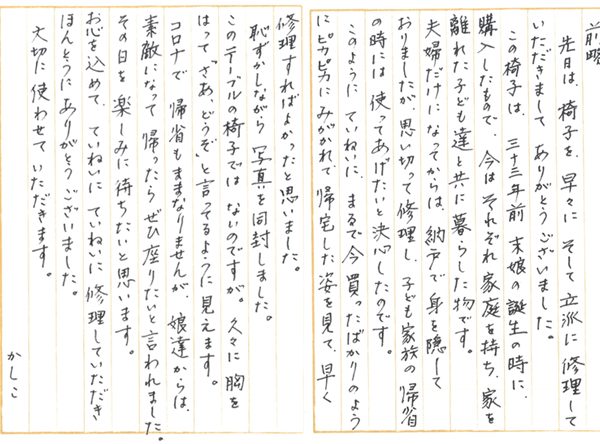 前略
先日は、椅子を、早々に そして 立派に 修理して
いただきまして ありがとう ございました。
この椅子は、三十三年前 末娘の誕生の時に、
購入したもので、今はそれぞれ家庭を持ち、家を
離れた子ども達と共に暮らした物です。
夫婦だけになってからは、納戸で身を隠して
おりましたが、思い切って修理し、子ども家族の帰省
の時には 使ってあげたいと決心したのです。
このように ていねいに、まるで今買ったばかりのよう
に ピカピカに みがかれて 帰宅した姿を見て、早く
修理すればよかったと思いました。
恥ずかしながら 写真を同封しました。
このテーブルの椅子では ないのですが。久々に 胸を
はって「さあ、どうぞ」と言ってるように見えます。
コロナで 帰省もままなりませんが、娘達からは、
素敵になって 帰ったら ぜひ座りたいと言われました。
その日を 楽しみに待ちたいと思います。
お心を込めて、ていねいに ていねいに 修理していただき
ほんとうにありがとうございました。
大切に使わせていただきます。
かしこ